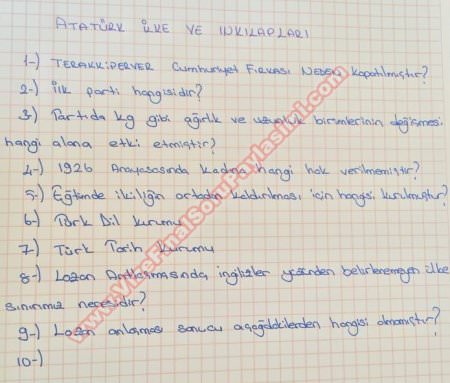 ATATÜRK İLKE VE INKILAPLARI
1-) TERAKKİPERVER Cumhuriyet FIRKASI NEDEN kapatılmıştır?
2-) İlk parti hangisidir?
3) Partida kg gibi ağırlık ve uzunluk birimlerinin değişmesi
hangi alana etki etmiştir?
4-) 1926 Anayasasında kadına hangi hak verilmemiştir?
5-) Eğitimde ikiliğin ortadan kaldırılması için hangisi kurulmuştur?
6-) Türk Dil kurumu
7-) Türk Tarih kurumu
8-) Lozan Antlaşmasında ingilizler yüzünden belirlenemeyen ülke
sınırımız neresidir?
9-) Lozan anlaşması sonucu aşağıdakilerden hangisi olmamıştır?
10-)
www.VizeFinalSoruPaylasimi.com